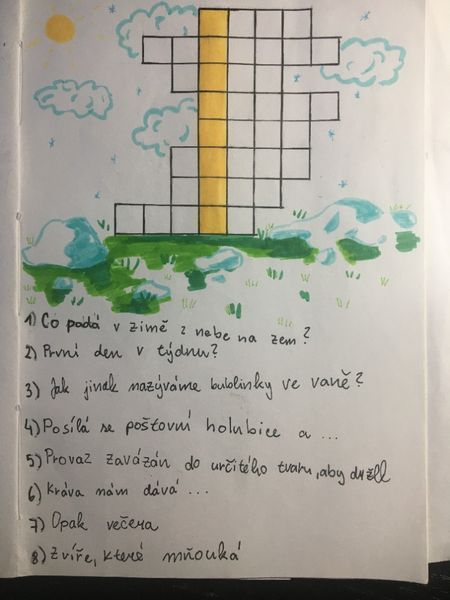 1) Co padá v zimě z nebe na zem?
2) První den v týdnu?
3) Jak jinak nazýváme bublinky ve vaně?
4) Posílá se poštovní holubice a ...
5) Provaz zavázán do určitého tvaru, aby držel
6) Kráva nám dává ...
7) Opak večera
8) Zvíře, které mňouká